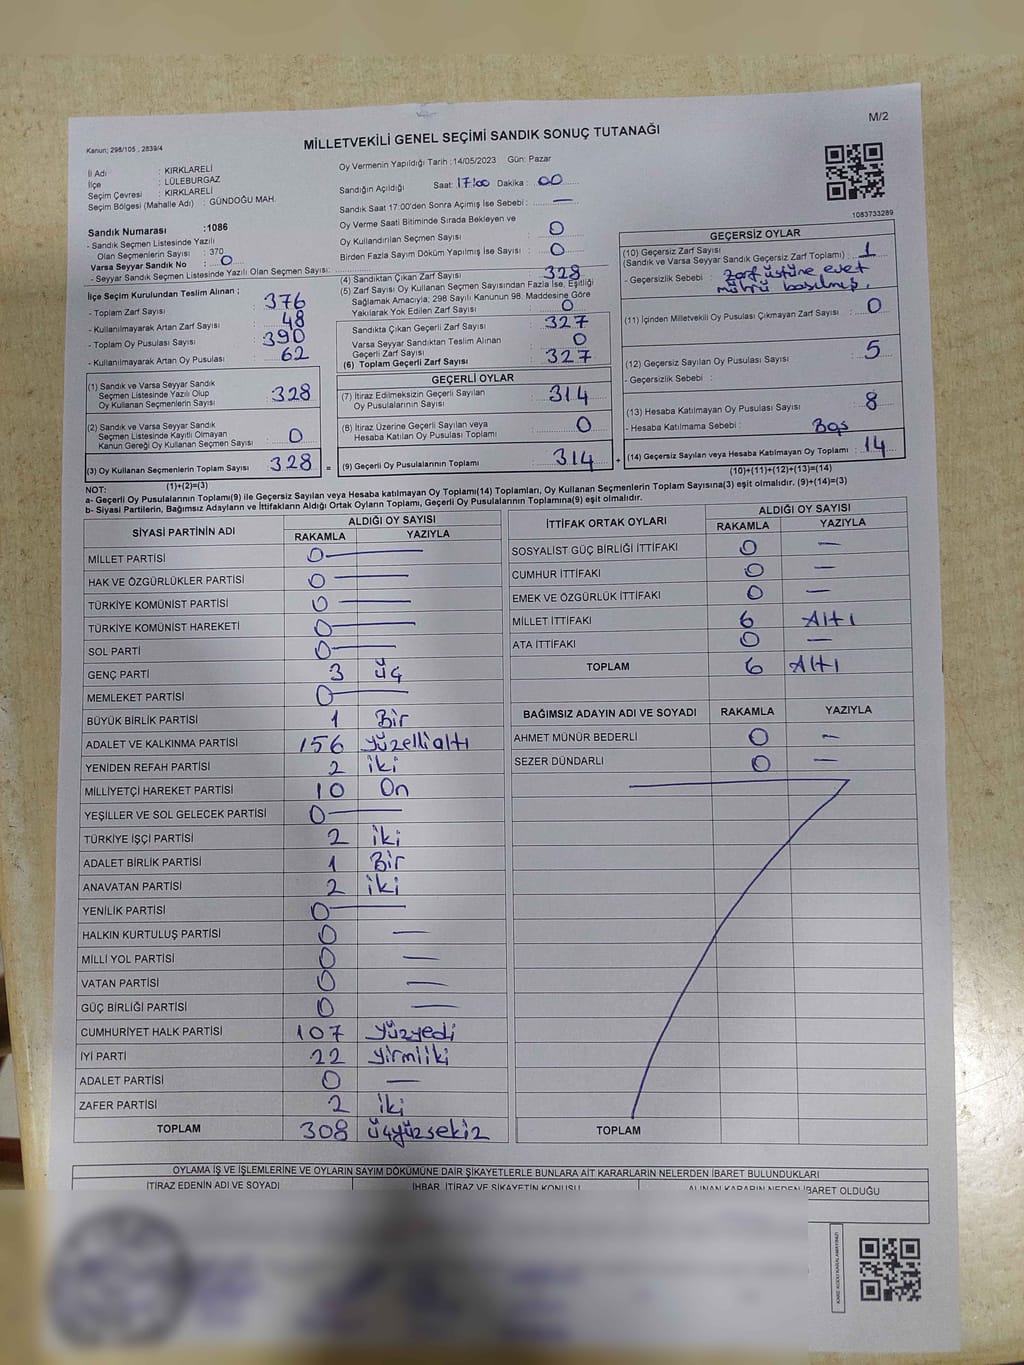 M/2
MİLLETVEKİLİ GENEL SEÇİMİ SANDIK SONUÇ TUTANAĞI
Kanun; 298/105 , 2839/4
İl Adı : KIRKLARELİ
İlçe : LÜLEBURGAZ
Seçim Çevresi : KIRKLARELİ
Seçim Bölgesi (Mahalle Adı) : GÜNDOĞU MAH.
Oy Vermenin Yapıldığı Tarih :14/05/2023 Gün: Pazar
Sandığın Açıldığı Saat: 17:00 Dakika : 00
Sandık Saat 17:00'den Sonra Açımış İse Sebebi : —
Oy Verme Saati Bitiminde Sırada Bekleyen ve
Oy Kullandırılan Seçmen Sayısı : 0
Birden Fazla Sayım Döküm Yapılmış İse Sayısı : 0
1083733289
Sandık Numarası :1086
- Sandık Seçmen Listesinde Yazılı
Olan Seçmenlerin Sayısı : 370
Varsa Seyyar Sandık No : 0
- Seyyar Sandık Seçmen Listesinde Yazılı Olan Seçmen Sayısı:
İlçe Seçim Kurulundan Teslim Alınan ;
- Toplam Zarf Sayısı : 376
- Kullanılmayarak Artan Zarf Sayısı : 48
- Toplam Oy Pusulası Sayısı : 390
- Kullanılmayarak Artan Oy Pusulası : 62
(1) Sandık ve Varsa Seyyar Sandık
Seçmen Listesinde Yazılı Olup
Oy Kullanan Seçmenlerin Sayısı : 328
(2) Sandık ve Varsa Seyyar Sandık
Seçmen Listesinde Kayıtlı Olmayan
Kanun Gereği Oy Kullanan Seçmen Sayısı : 0
(3) Oy Kullanan Seçmenlerin Toplam Sayısı : 328 =
(1)+(2)=(3)
(4) Sandıktan Çıkan Zarf Sayısı : 328
(5) Zarf Sayısı Oy Kullanan Seçmen Sayısından Fazla İse, Eşitliği
Sağlamak Amacıyla; 298 Sayılı Kanunun 98. Maddesine Göre
Yakılarak Yok Edilen Zarf Sayısı : 0
Sandıkta Çıkan Geçerli Zarf Sayısı : 327
Varsa Seyyar Sandıktan Teslim Alınan
Geçerli Zarf Sayısı : 0
(6) Toplam Geçerli Zarf Sayısı : 327
GEÇERLİ OYLAR
(7) İtiraz Edilmeksizin Geçerli Sayılan
Oy Pusulalarının Sayısı : 314
(8) İtiraz Üzerine Geçerli Sayılan veya
Hesaba Katılan Oy Pusulası Toplamı : 0
(9) Geçerli Oy Pusulalarının Toplamı : 314 +
GEÇERSİZ OYLAR
(10) Geçersiz Zarf Sayısı
(Sandık ve Varsa Seyyar Sandık Geçersiz Zarf Toplamı) : 1
- Geçersizlik Sebebi : zarf üstüne evet
mührü basılmış.
(11) İçinden Milletvekili Oy Pusulası Çıkmayan Zarf Sayısı : 0
(12) Geçersiz Sayılan Oy Pusulası Sayısı : 5
- Geçersizlik Sebebi :
(13) Hesaba Katılmayan Oy Pusulası Sayısı : 8
- Hesaba Katılmama Sebebi : Boş
(14) Geçersiz Sayılan veya Hesaba Katılmayan Oy Toplamı : 14
(10)+(11)+(12)+(13)=(14)
NOT:
a- Geçerli Oy Pusulalarının Toplamı(9) ile Geçersiz Sayılan veya Hesaba katılmayan Oy Toplamı(14) Toplamları, Oy Kullanan Seçmenlerin Toplam Sayısına(3) eşit olmalıdır. (9)+(14)=(3)
b- Siyasi Partilerin, Bağımsız Adayların ve İttifakların Aldığı Ortak Oyların Toplamı, Geçerli Oy Pusulalarının Toplamına(9) eşit olmalıdır.
SİYASİ PARTİNİN ADI ALDIĞI OY SAYISI
RAKAMLA YAZIYLA
MİLLET PARTİSİ 0 —
HAK VE ÖZGÜRLÜKLER PARTİSİ 0 —
TÜRKİYE KOMÜNİST PARTİSİ 0 —
TÜRKİYE KOMÜNİST HAREKETİ 0 —
SOL PARTİ 0 —
GENÇ PARTİ 3 üç
MEMLEKET PARTİSİ 0 —
BÜYÜK BİRLİK PARTİSİ 1 Bir
ADALET VE KALKINMA PARTİSİ 156 yüzellialtı
YENİDEN REFAH PARTİSİ 2 iki
MİLLİYETÇİ HAREKET PARTİSİ 10 On
YEŞİLLER VE SOL GELECEK PARTİSİ 0 —
TÜRKİYE İŞÇİ PARTİSİ 2 iki
ADALET BİRLİK PARTİSİ 1 Bir
ANAVATAN PARTİSİ 2 iki
YENİLİK PARTİSİ 0 —
HALKIN KURTULUŞ PARTİSİ 0 —
MİLLİ YOL PARTİSİ 0 —
VATAN PARTİSİ 0 —
GÜÇ BİRLİĞİ PARTİSİ 0 —
CUMHURİYET HALK PARTİSİ 107 yüzyedi
İYİ PARTİ 22 yirmiiki
ADALET PARTİSİ 0 —
ZAFER PARTİSİ 2 iki
TOPLAM 308 üçyüzsekiz
İTTİFAK ORTAK OYLARI ALDIĞI OY SAYISI
RAKAMLA YAZIYLA
SOSYALİST GÜÇ BİRLİĞİ İTTİFAKI 0 —
CUMHUR İTTİFAKI 0 —
EMEK VE ÖZGÜRLÜK İTTİFAKI 0 —
MİLLET İTTİFAKI 6 Altı
ATA İTTİFAKI 0 —
TOPLAM 6 Altı
BAĞIMSIZ ADAYIN ADI VE SOYADI RAKAMLA YAZIYLA
AHMET MÜNÜR BEDERLİ 0 —
SEZER DÜNDARLI 0 —
TOPLAM
OYLAMA İŞ VE İŞLEMLERİNE VE OYLARIN SAYIM DÖKÜMÜNE DAİR ŞİKAYETLERLE BUNLARA AİT KARARLARIN NELERDEN İBARET BULUNDUKLARI
İTİRAZ EDENİN ADI VE SOYADI İHBAR, İTİRAZ VE ŞİKAYETİN KONUSU ALINAN KARARIN NEDEN İBARET OLDUĞU